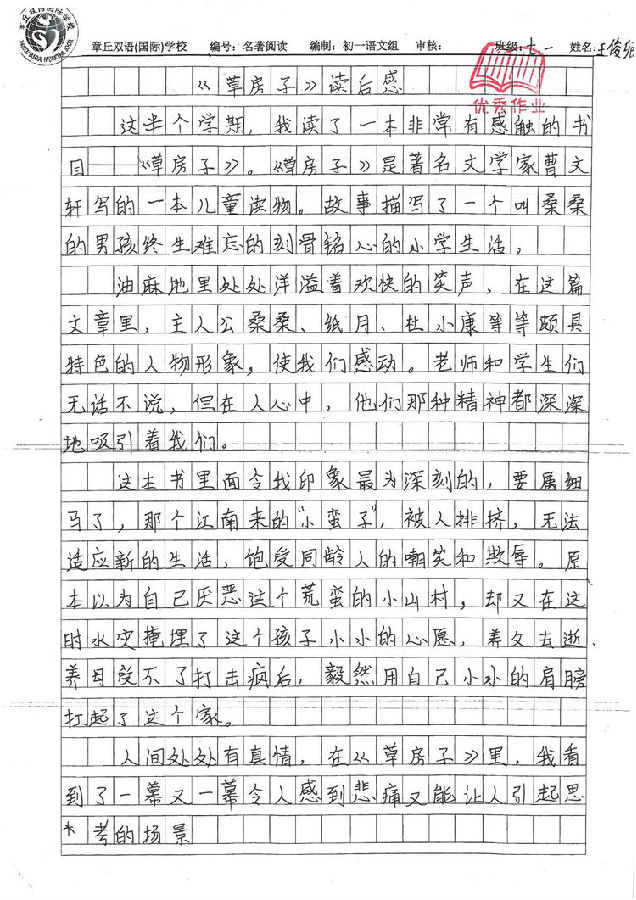 章丘双语(国际)学校 编号：名著阅读 编制：初一语文组 审核： 班级：七一 姓名：王俊
优秀作业
《草房子》读后感
这半个学期，我读了一本非常有感触的书
目《草房子》。《草房子》是著名文学家曹文
轩写的一本儿童读物。故事描写了一个叫桑桑
的男孩终生难忘的刻骨铭心的小学生活，
油麻地里处处洋溢着欢快的笑声，在这篇
文章里，主人公桑桑、纸月、杜小康等等颇具
特色的人物形象，使我们感动。老师和学生们
无话不说，但在人心中，他们那种精神都深深
地吸引着我们。
这本书里面令我印象最为深刻的，要属细
马了，那个江南来的"小蛮子"，被人排挤，无法
适应新的生活，饱受同龄人的嘲笑和欺辱。原
本以为自己厌恶这个荒蛮的小山村，却又在这
时水灾掩埋了这个孩子小小的心愿，养父去逝、
养母受不了打击病后，毅然用自己小小的肩膀
扛起了这个家。
人间处处有真情，在《草房子》里，我看
到了一幕又一幕令人感到悲痛又能让人引起思
考的场景